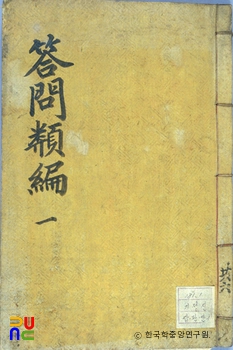 答問類編
一
共六
PUNC
© 한국학중앙연구원